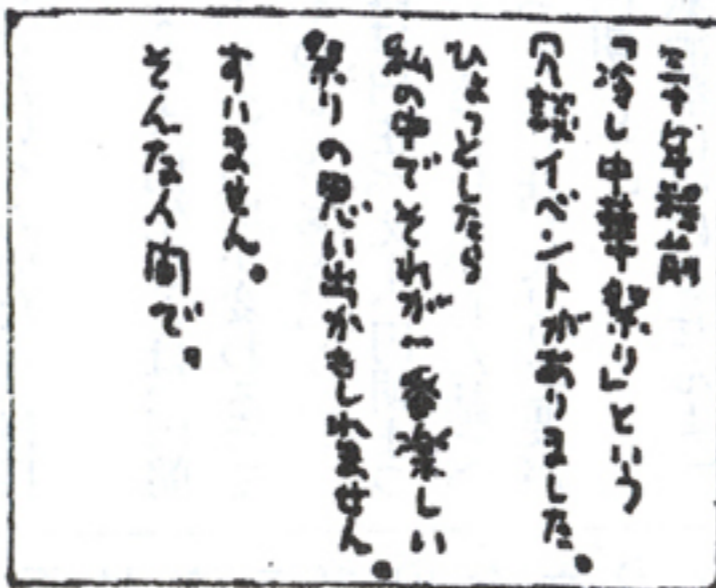 三十年程前
「冷し中華祭り」という
冗談イベントがありました。
ひょっとしたら
私の中でそれが一番楽しい
祭りの思い出かもしれません。
すいません。
そんな人間で。